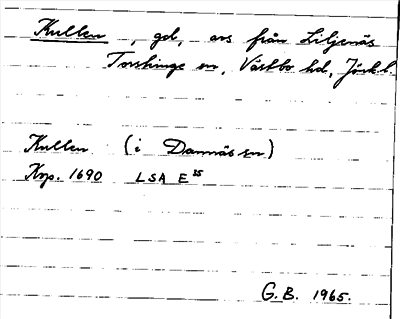 Kullen, gd, avs från Liljenäs
Torskinge sn, Västbo hd, Jönk l.
Kullen (i Dannäs sn)
Krp. 1690 LSA E 15
G.B. 1965.